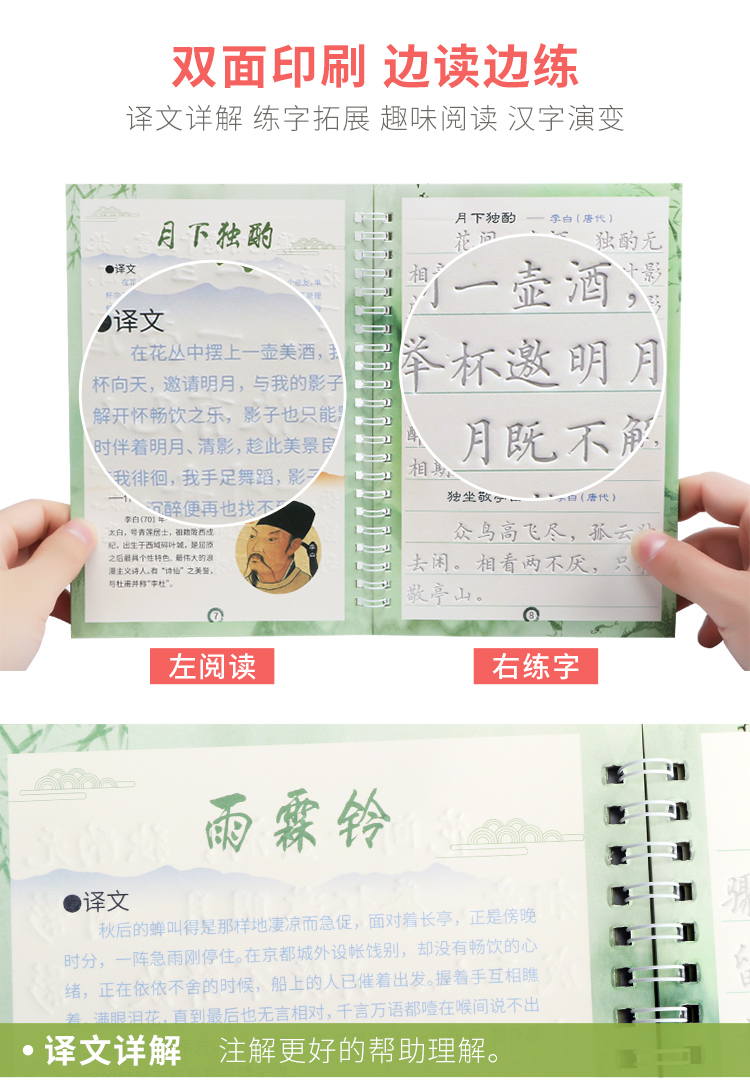 双面印刷 边读边练
译文详解 练字拓展 趣味阅读 汉字演变
月下独酌
●译文
●译文
在花丛中摆上一壶美酒，我
杯向天，邀请明月，与我的影子
解开怀畅饮之乐，影子也只能
时伴着明月、清影，趁此美景良
我徘徊，我手足舞蹈，影子
沉醉便再也找不
李白（701年
太白，号青莲居士，祖籍陇西成
纪，出生于西域碎叶城，是屈原
之后最具个性特色、最伟大的浪
漫主义诗人。有“诗仙”之美誉，
与杜甫并称“李杜”。
7
月下独酌 —— 李白（唐代）
花间 独酌无
相
一壶酒，
举杯邀明月
月既不解
相期
独坐敬亭山 李白（唐代）
众鸟高飞尽，孤云
去闲。相看两不厌，只
敬亭山。
8
左阅读
右练字
雨霖铃
●译文
秋后的蝉叫得是那样地凄凉而急促，面对着长亭，正是傍晚
时分，一阵急雨刚停住。在京都城外设帐饯别，却没有畅饮的心
绪，正在依依不舍的时候，船上的人已催着出发。握着手互相瞧
着，满眼泪花，直到最后也无言相对，千言万语都噎在喉间说不出
• 译文详解 注解更好的帮助理解。